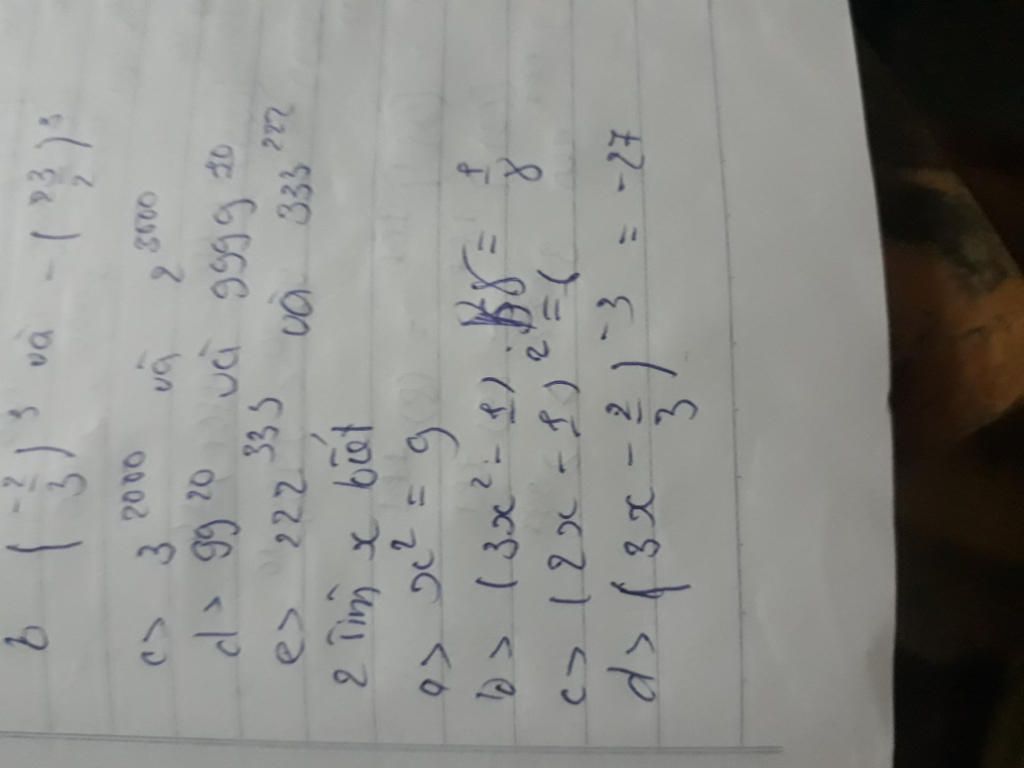 b (-2/3)³ và -(33/2)³
c> 3²⁰⁰⁰ và 2³⁰⁰⁰
d> 99²⁰ và 9999¹⁰
e> 222³³³ và 333²²²
2 Tìm x biết
a> x² = 9
b> (3x² - 1) . 8 = 1/8
c> (2x - 1)² =
d> (3x - 2/3)⁻³ = -27